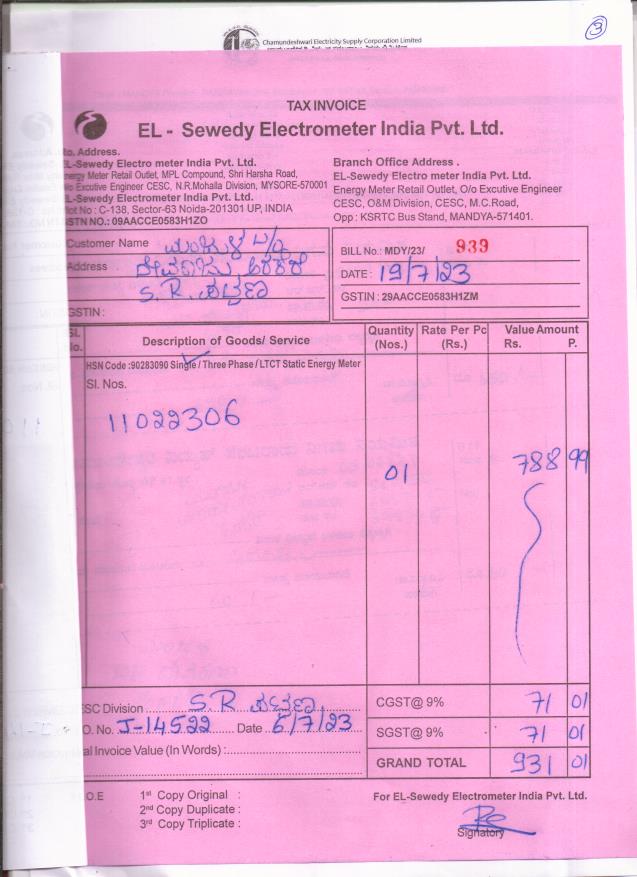 3
Chamundeshwari Electricity Supply Corporation Limited
TAX INVOICE
EL - Sewedy Electrometer India Pvt. Ltd.
o. Address.
EL-Sewedy Electro meter India Pvt. Ltd.
nergy Meter Retail Outlet, MPL Compound, Shri Harsha Road,
o Excutive Engineer CESC, N.R.Mohalla Division, MYSORE-570001
EL-Sewedy Electrometer India Pvt. Ltd.
lot No : C-138, Sector-63 Noida-201301 UP, INDIA
GSTN NO.: 09AACCE0583H1ZO
Branch Office Address .
EL-Sewedy Electro meter India Pvt. Ltd.
Energy Meter Retail Outlet, O/o Excutive Engineer
CESC, O&M Division, CESC, M.C.Road,
Opp : KSRTC Bus Stand, MANDYA-571401.
Customer Name ಮಂಜುಳ
Address
S.R. ಪಟ್ಟಣ
GSTIN :
BILL No.: MDY/23/ 939
DATE : 19/7/23
GSTIN : 29AACCE0583H1ZM
Sl. No. Description of Goods/ Service Quantity (Nos.) Rate Per Pc (Rs.) Value Amount Rs. P.
HSN Code :90283090 Single / Three Phase / LTCT Static Energy Meter
Sl. Nos.
11022306
01 788 99
ESC Division S.R ಪಟ್ಟಣ
O. No. J-14522 Date 6/7/23
al Invoice Value (In Words) :
CGST@ 9% 71 01
SGST@ 9% 71 01
GRAND TOTAL 931 01
.O.E
1st Copy Original :
2nd Copy Duplicate :
3rd Copy Triplicate :
For EL-Sewedy Electrometer India Pvt. Ltd.
Signatory